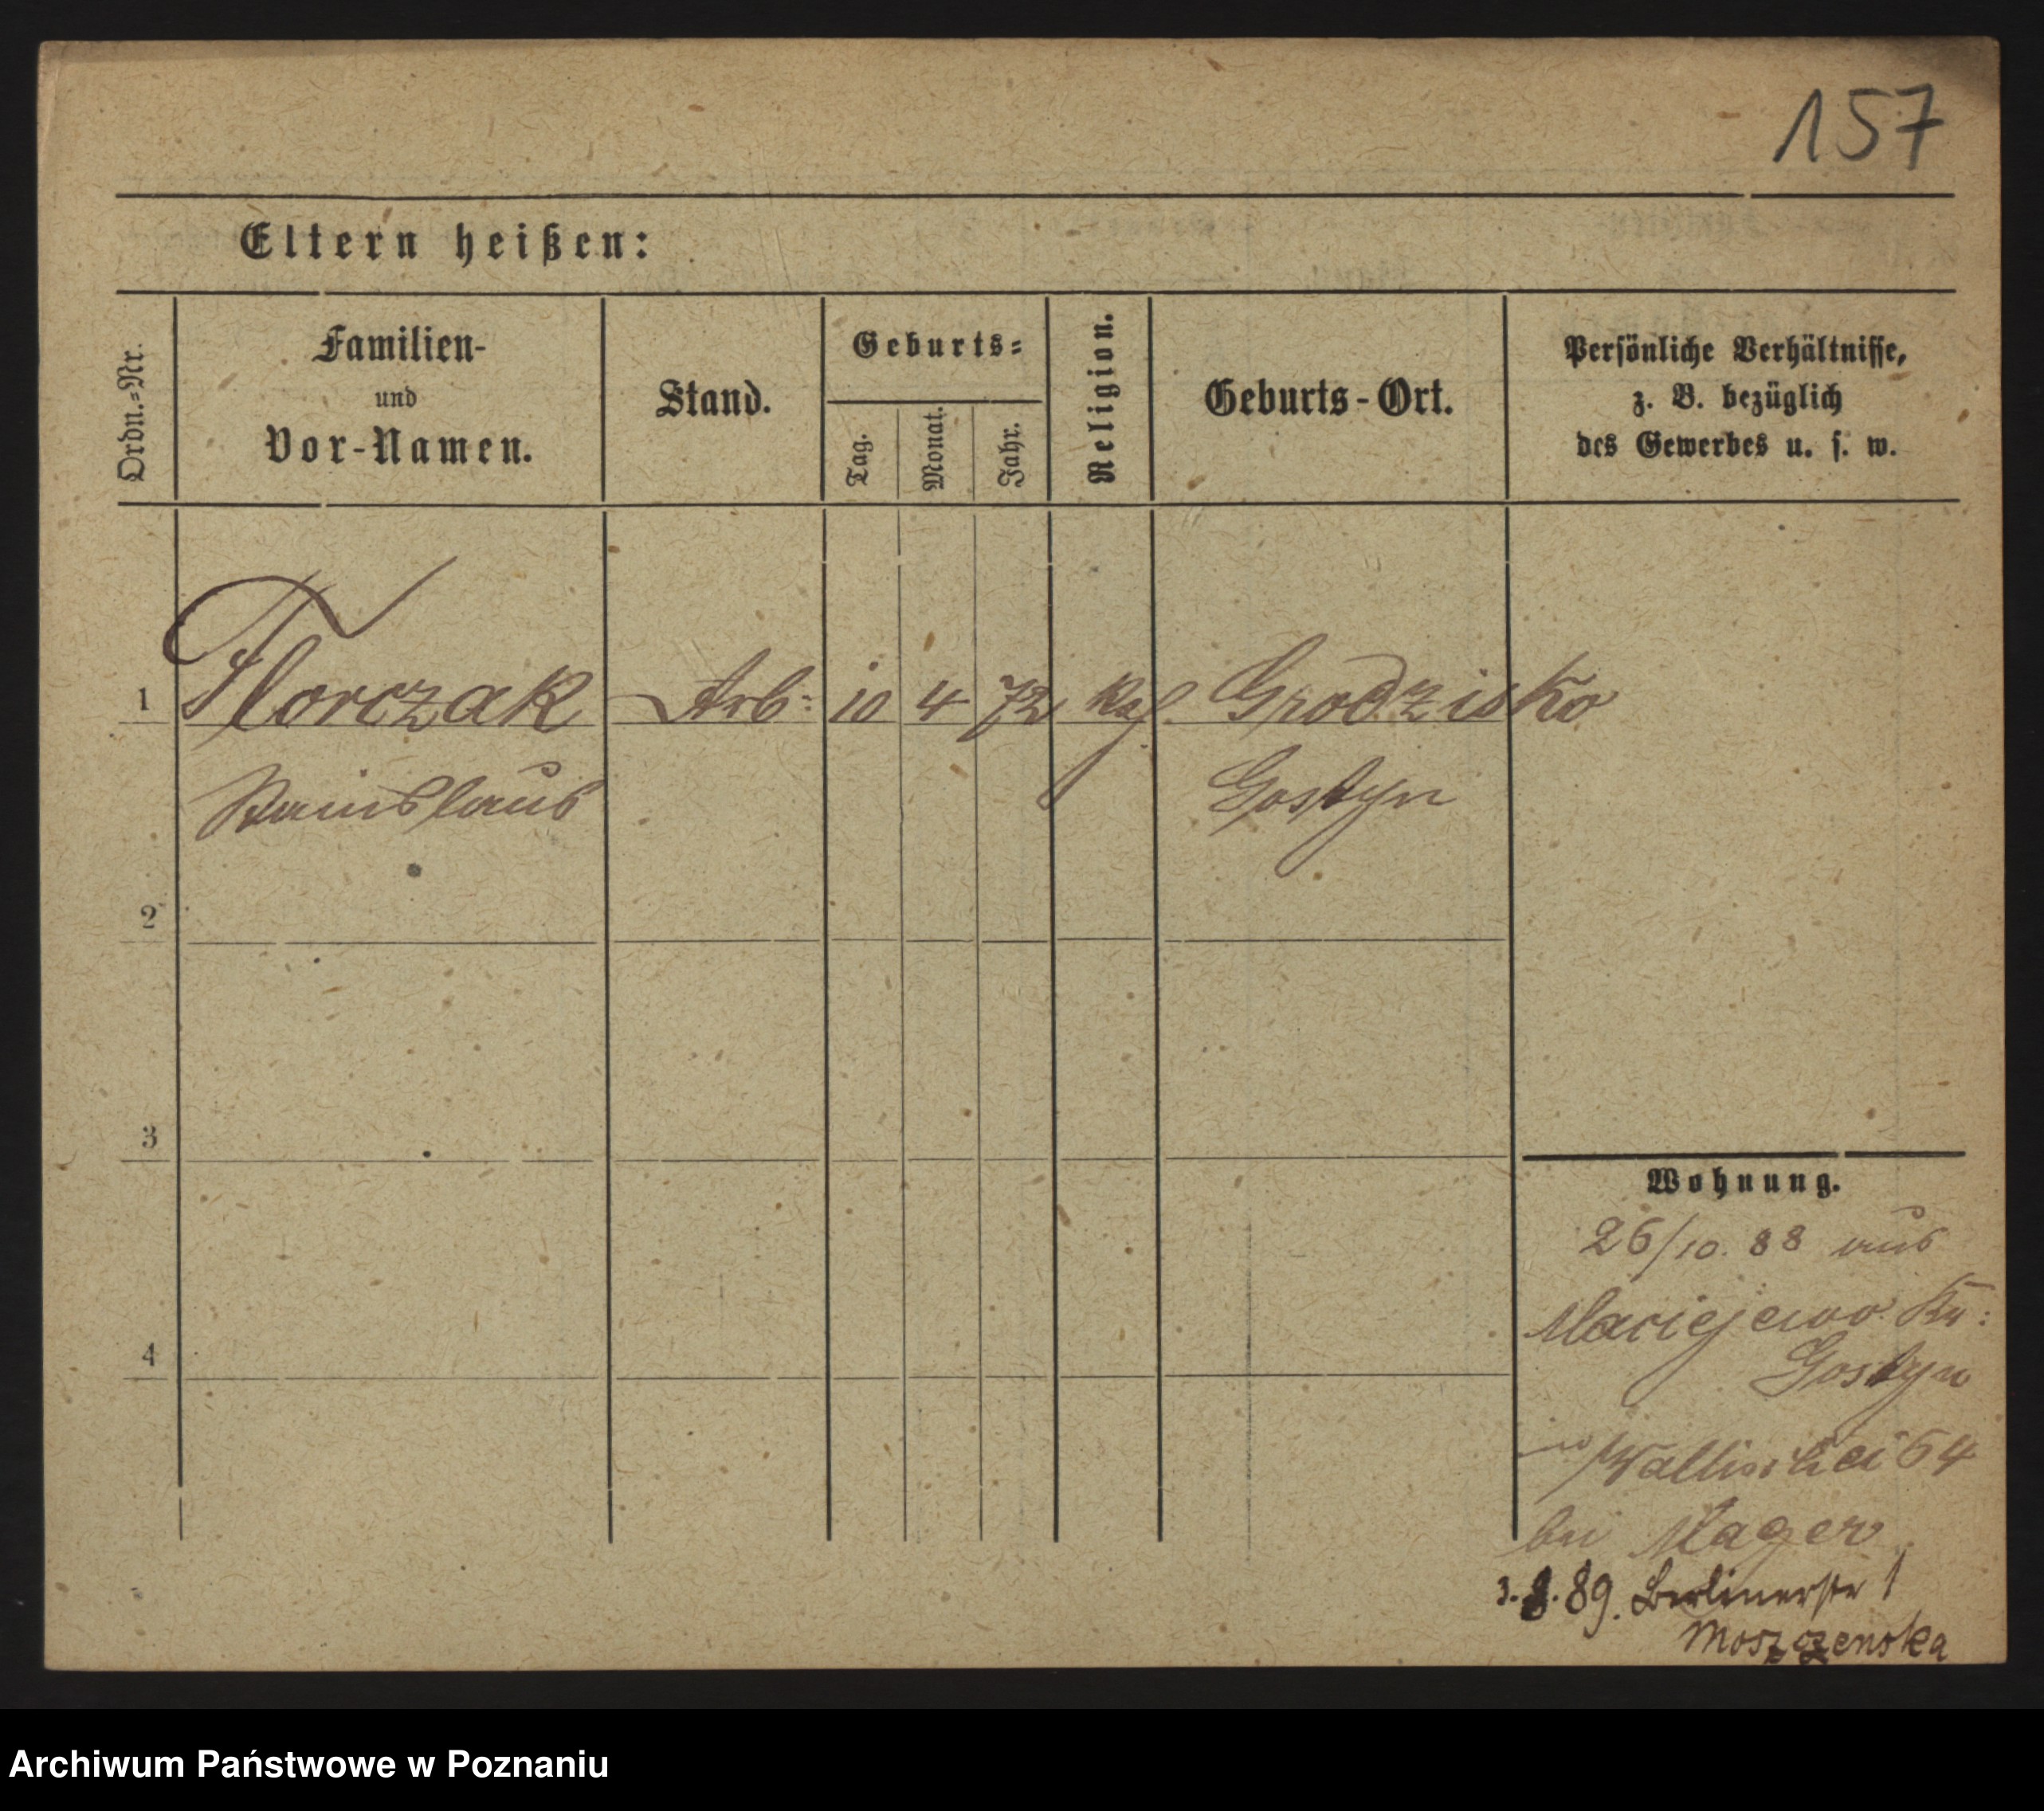 157
Eltern heißen:
Ordn.=Nr.
Familien-
und
Vor-Namen.
Stand.
Geburts=
Tag.
Monat.
Jahr.
Religion.
Geburts-Ort.
Persönliche Verhältnisse,
z. B. bezüglich
des Gewerbes u. s. w.
1 Florczak Arb: 10 4 72 Kaf. Grodzisko
Stanislaus Gostyn
2
3
4
Wohnung.
26/10. 88 aus
Maciejewo. Kr:
Gostyn
Wallischei 64
bei Mager
3.8.89. Berlinerstr 1
Moszczenska
Archiwum Państwowe w Poznaniu